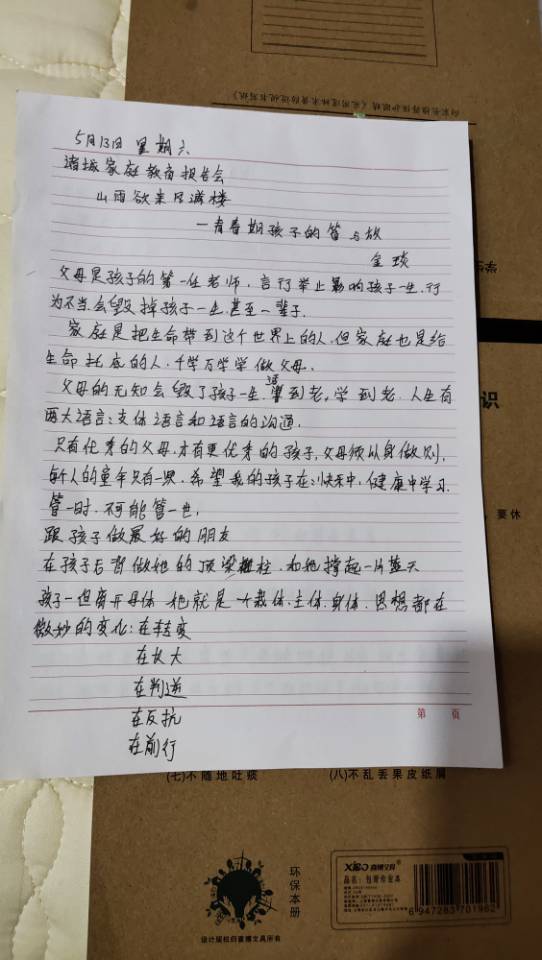 5月13日 星期六
诸城家庭教育报告会
山雨欲来风满楼
—青春期孩子的管与放
金琰
父母是孩子的第一任老师，言行举止影响孩子一生，行
为不当，会毁掉孩子一生，甚至一辈子.
家庭是把生命带到这个世界上的人，但家庭也是给
生命托底的人，千学万学学做父母.
父母的无知会毁了孩子一生.活到老，学到老.人生有
两大语言：支体语言和语言的沟通.
只有优秀的父母，才有更优秀的孩子，父母须从身做则，
每个人的童年只有一界，希望我的孩子在：快乐中，健康中学习.
管一时，不可能管一世，
跟孩子做最好的朋友
在孩子后背做她的顶梁柱，和她撑起一片蓝天
孩子一但离开母体，她就是一个载体.主体.身体.思想都在
微妙的变化：在转变
在长大
在判逆
在反抗
在前行
第 页
识
要休
(七)不随地吐痰 (八)不乱丢果皮纸屑
环保本册
设计版权归喜博文具所有
品名：
6 947283 701962